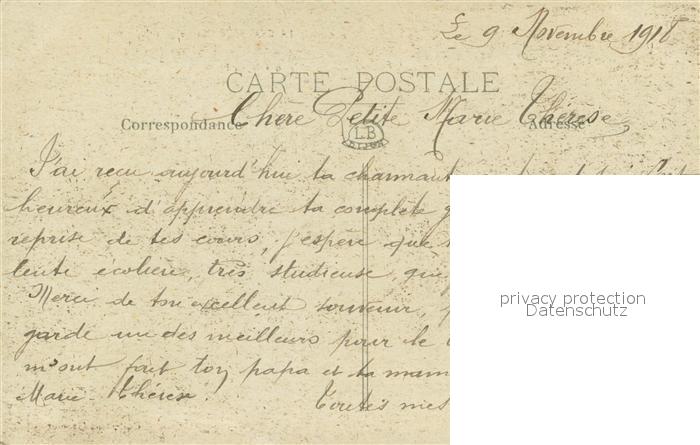 Le 9 Novembre 1918
CARTE POSTALE
Correspondance
Adresse
LB
DIJON
Chère Petite Marie Thérèse
J'ai reçu aujourd'hui ta charmante
heureux d'apprendre ta complète
reprise de tes cours, j'espère que
lente écolière, très studieuse, que
Merci de ton excellent souvenir,
garde un des meilleurs pour le
m'ont fait ton papa et ta maman
Marie Thérèse. Toutes mes
privacy protection
Datenschutz